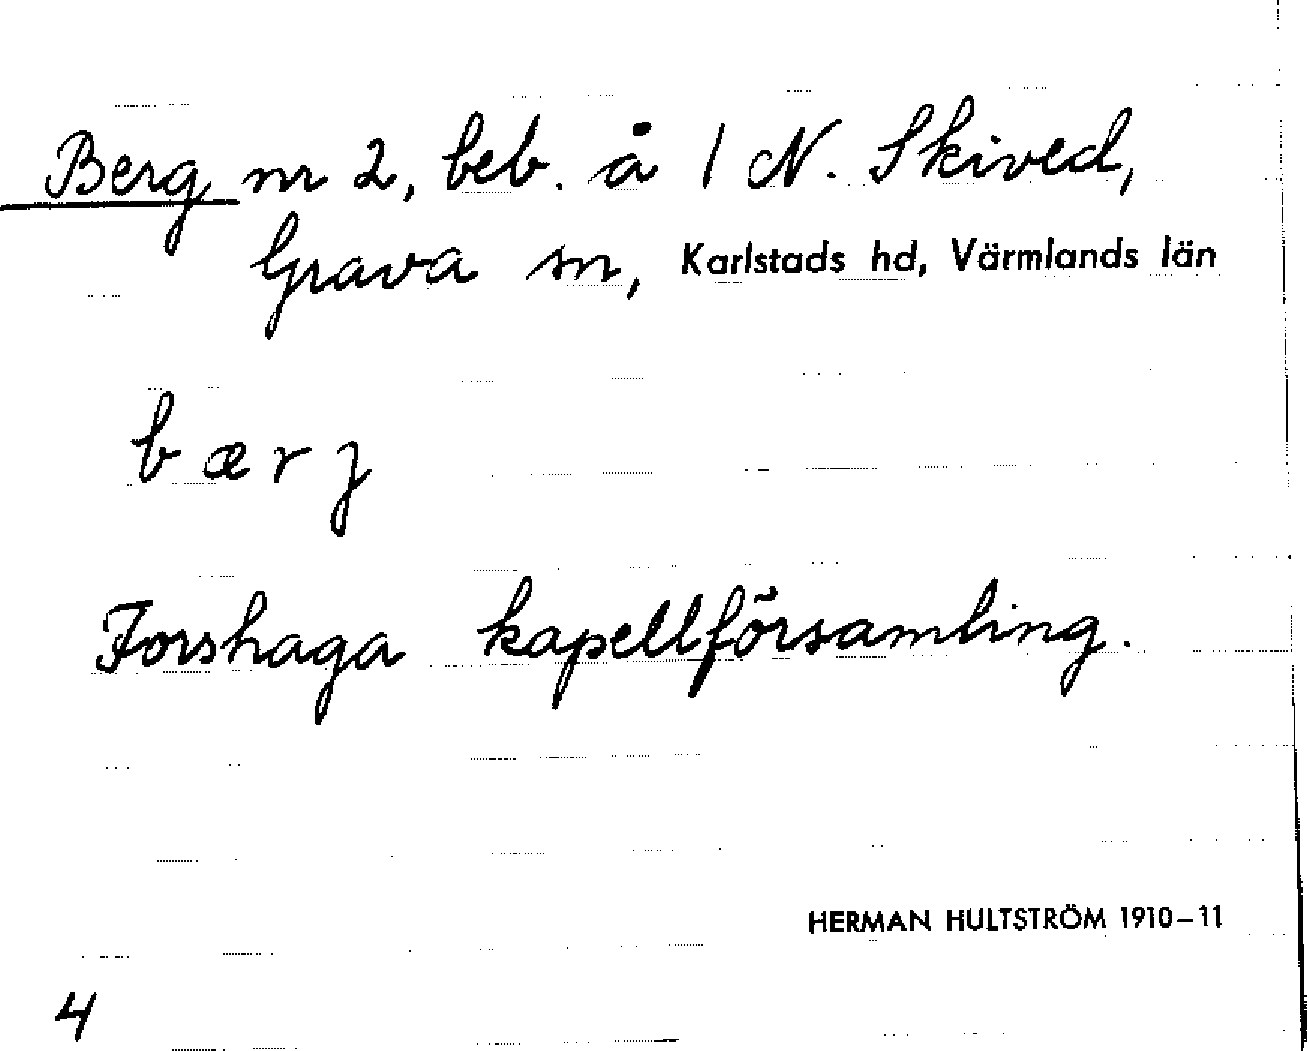 Berg nr 2, beb. å 1 N. Skived,
Grava sn, Karlstads hd, Värmlands län
bærj
Forshaga kapellförsamling.
HERMAN HULTSTRÖM 1910–11
4